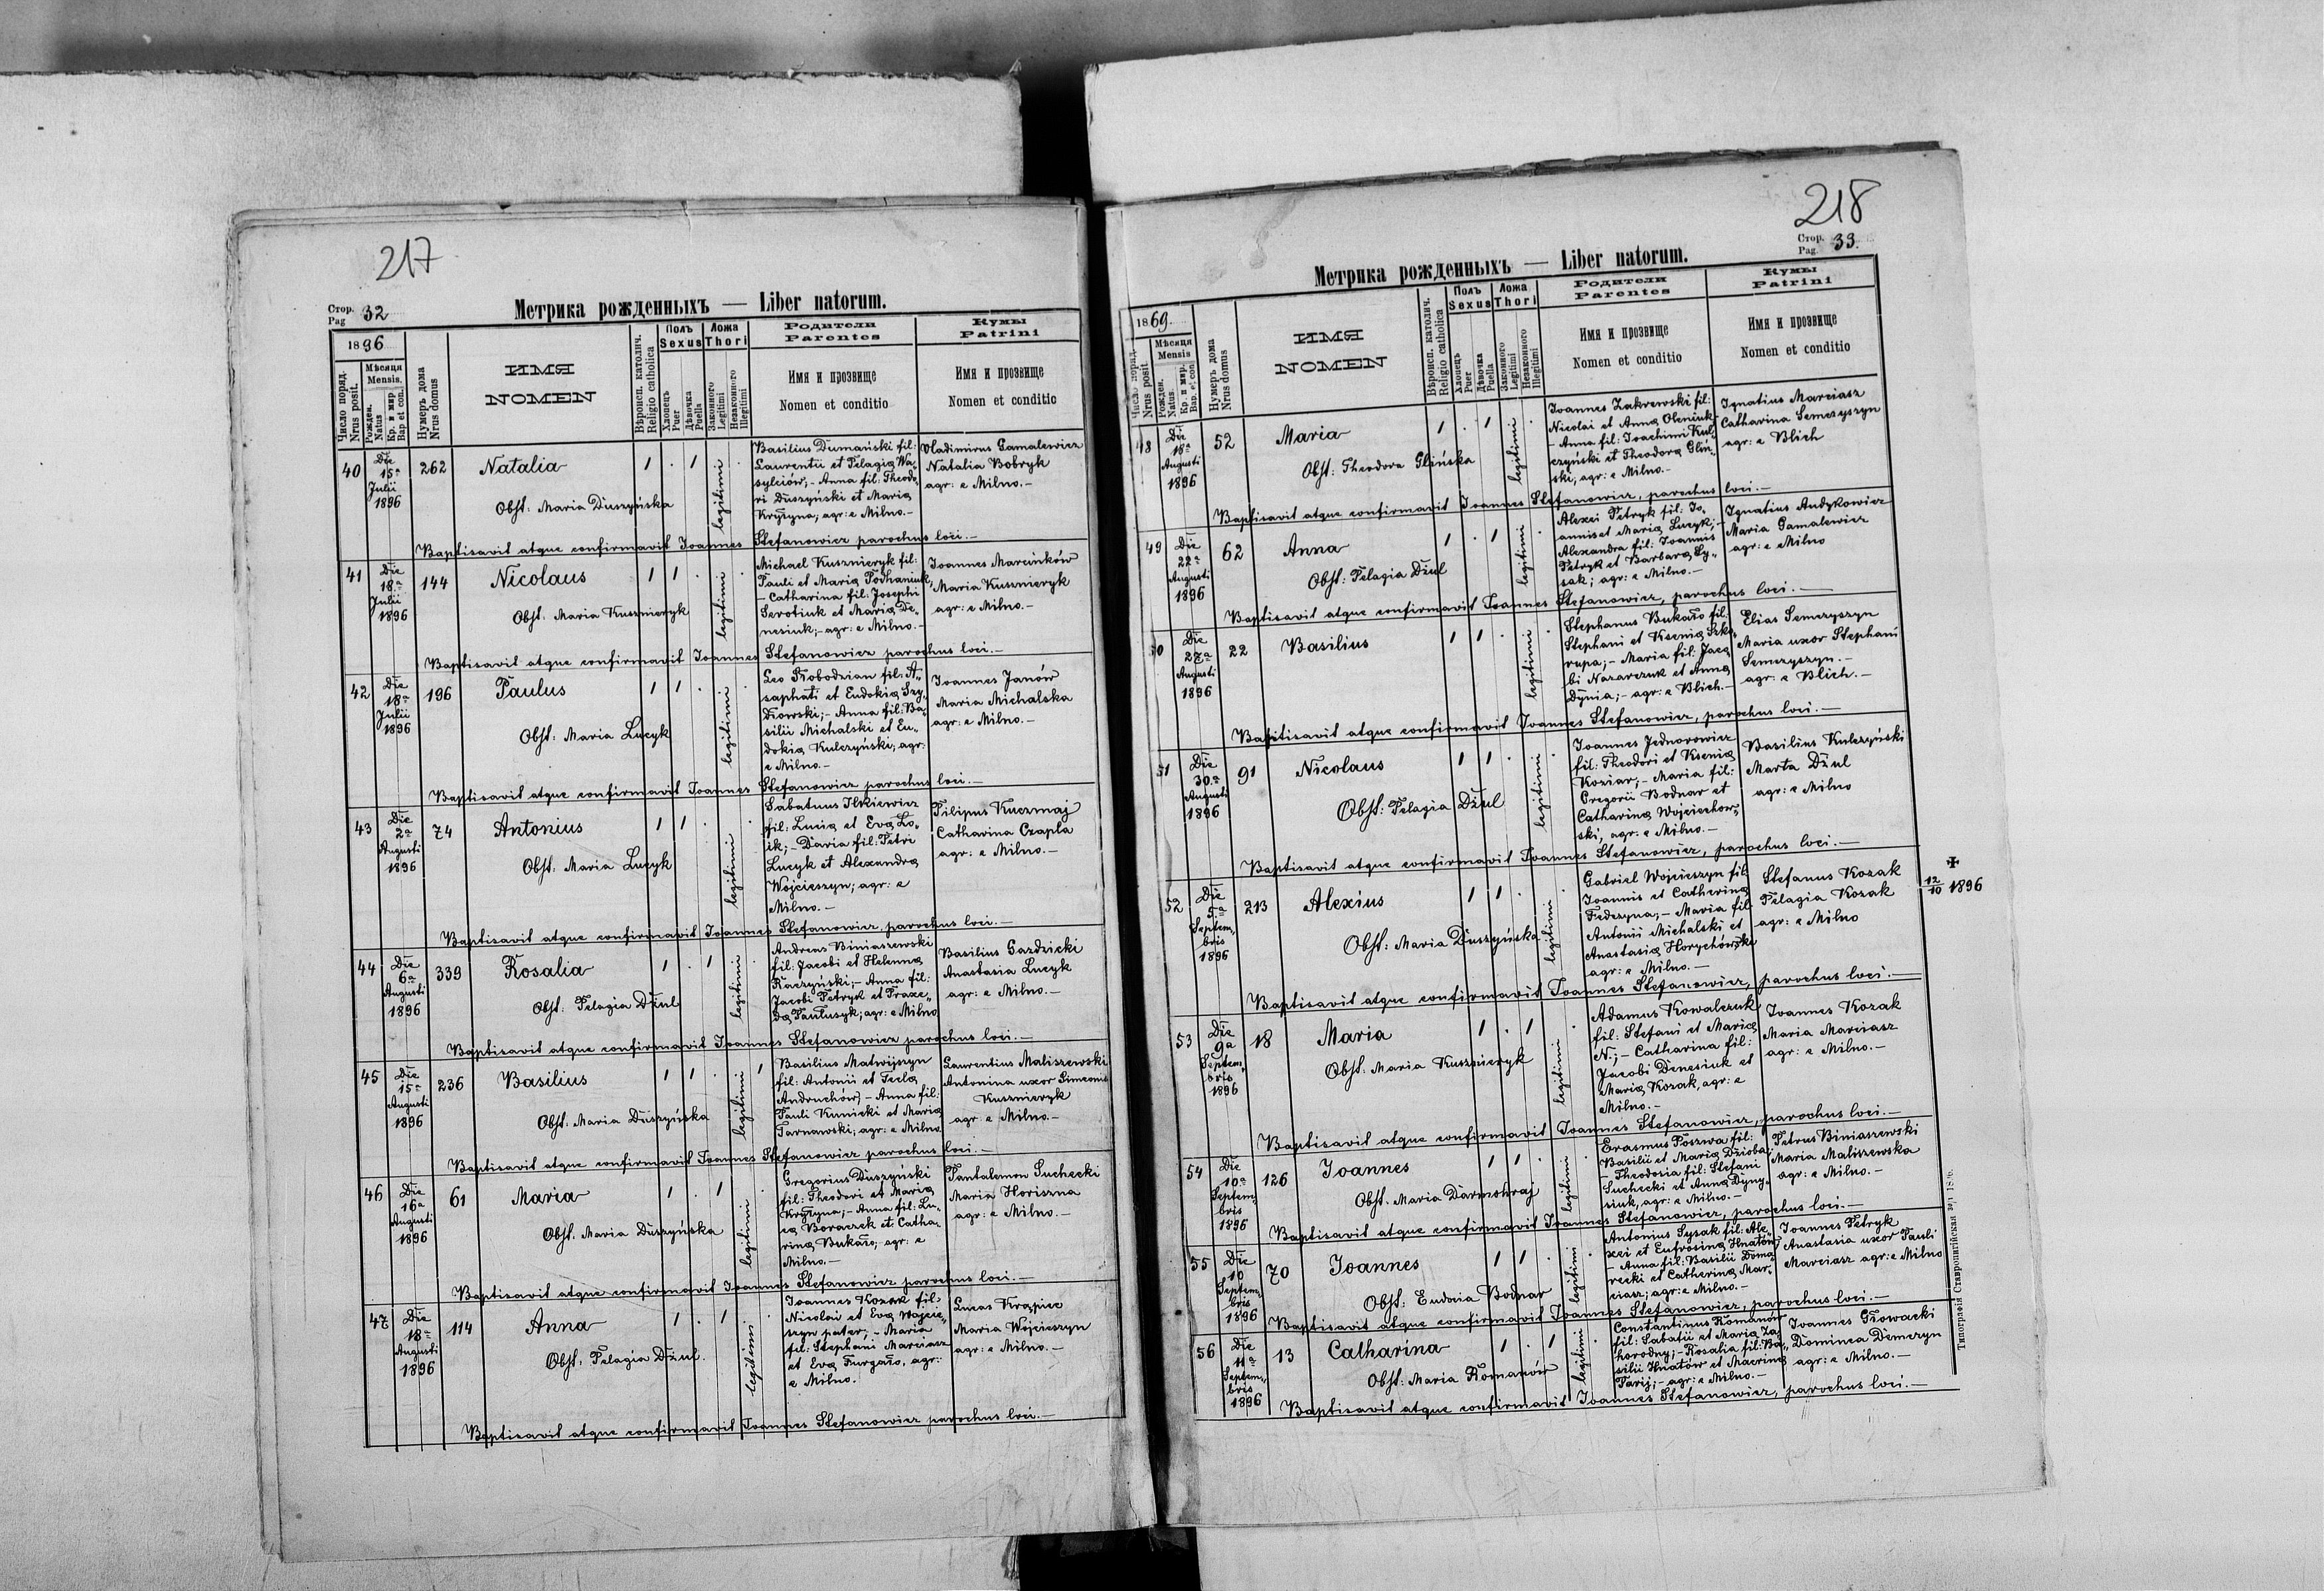 217
Стор.
Pag 32
Метрика рожденныхъ — Liber natorum.
1896
Число поряд.
Nrus posit.
Мѣсяця
Mensis.
Рожден.
Natus
Кр. и мир.
Bap et con.
Нумеръ дома
Nrus domus
ИМЯ
NOMEN
Вѣроисп. католич.
Religio catholica
Полъ
Sexus
Хлопецъ
Puer
Дѣвочка
Puella
Ложа
Thori
Законного
Legitimi
Незаконного
Illegitimi
Родители
Parentes
Имя и прозвище
Nomen et conditio
Кумы
Patrini
Имя и прозвище
Nomen et conditio
40
Die
15ª
Julii
1896
262
Natalia
Obst: Maria Duszyńska
1 . 1
legitimi
Basilius Dumański fil:
Laurentii et Pelagia Wa„
sylciów; - Anna fil: Theodo„
ri Duszyński et Maria
Kryszyna; agr: e Milno. -
Vladimirus Gamalewicz
Natalia Bobryk
agr: e Milno. -
Baptisavit atque confirmavit Joannes Stefanowicz parochus loci. -
41
Die
18ª
Julii
1896
144
Nicolaus
Obst: Maria Kusznieryk
1 1 .
legitimi
Michael Kusznieryk fil:
Pauli et Maria Pochaniuk,
- Catharina fil: Josephi
Serotiuk et Maria De„
nesiuk; - agr: e Milno. -
Joannes Marcinków
Maria Kusznieryk
agr: e Milno. -
Baptisavit atque confirmavit Joannes Stefanowicz parochus loci. -
42
Die
18ª
Julii
1896
196
Paulus
Obst: Maria Lucyk
1 1 .
legitimi
Leo Kobodzian fil: A„
saphati et Eudokia Szy„
Anna fil: Ba„
silii Michalski et Eu„
dokia Kulczyński; agr:
e Milno. -
Joannes Janów
Maria Michalska
agr: e Milno. -
Baptisavit atque confirmavit Joannes Stefanowicz parochus loci. -
43
Die
2ª
Augusti
1896
74
Antonius
Obst: Maria Lucyk
1 1 .
legitimi
Sabatuus Ilkiewicz
fil: Lucia et Eva Lo„
ik; - Daria fil: Petri
Lucyk et Alexandra
Wojcieszyn; agr: e
Milno. -
Filipus Kuczmaj
Catharina Czapla
agr: e Milno. -
Baptisavit atque confirmavit Joannes Stefanowicz parochus loci. -
44
Die
6ª
Augusti
1896
339
Rosalia
Obst: Pelagia Dżul
1 . 1
legitimi
Andreas Biniaszewski
fil: Jacobi et Helenna
Raczyński; - Anna fil:
Jacobi Petryk et Praxe„
da Pautusyk; agr: e Milno
Basilius Gazdzicki
Anastasia Lucyk
agr: e Milno. -
Baptisavit atque confirmavit Joannes Stefanowicz parochus loci. -
45
Die
15ª
Augusti
1896
236
Basilius
Obst: Maria Duszyńska
1 1 .
legitimi
Basilius Matwijszyn
fil: Antonii et Tecla
Andruchów, - Anna fil:
Pauli Kunicki et Maria
Tarnawski; agr: e Milno.
Laurentius Maliszewski
Antonina uxor Simeonis
Kusznieryk
agr: e Milno. -
Baptisavit atque confirmavit Joannes Stefanowicz parochus loci. -
46
Die
16ª
Augusti
1896
61
Maria
Obst: Maria Duszyńska
1 . 1
legitimi
Gregorius Duszyński
fil: Theodori et Maria
Kryszyna; - Anna fil: Lu„
ca Boraczek et Catha„
rina Bukało; agr: e
Milno. -
Pantalemon Suchecki
Maria Horiszna
agr: e Milno. -
Baptisavit atque confirmavit Joannes Stefanowicz parochus loci. -
47
Die
18ª
Augusti
1896
114
Anna
Obst: Pelagia Dżul.
1 . 1
legitimi
Joannes Kozak fil:
Nicolai et Eva Wojcie„
szyn pater; - Maria
fil: Stephani Marciasz
et Eva Furgało, agr:
e Milno.
Lucas Krąpiec
Maria Wojcieszyn
agr: e Milno. -
Baptisavit atque confirmavit Joannes Stefanowicz parochus loci. -
218
Стор.
Pag. 33.
Метрика рожденныхъ — Liber natorum.
1869.
Число поряд.
Nrus posit.
Мѣсяця
Mensis
Рожден.
Natus.
Кр. и мир.
Bap. et con.
Нумеръ дома
Nrus domus
ИМЯ
NOMEN
Вѣроисп. католич.
Religio catholica
Полъ
Sexus
Хлопецъ
Puer
Дѣвочка
Puella
Ложа
Thori
Законного
Legitimi
Незаконного
Illegitimi
Родители
Parentes
Имя и прозвище
Nomen et conditio
Кумы
Patrini
Имя и прозвище
Nomen et conditio
48
Die
18ª
Augusti
1896
52
Maria
Obst: Theodora Glińska
1 . 1
legitimi
Joannes Zakrewski fil:
Nicolai et Anna Oleniuk
- Anna fil: Joachimi Kul„
czyński et Theodora Gliń„
ski, agr: e Milno. -
Ignatius Marciasz
Catharina Semczyszyn
agr: e Blich
Baptisavit atque confirmavit Joannes Stefanowicz, parochus loci. -
49
Die
22ª
Augusti
1896
62
Anna
Obst: Pelagia Dżul
1 . 1
legitimi
Alexei Petryk fil: Jo„
annis et Maria Lucyk; -
Alexandra fil: Joannis
Petryk et Barbara Ły„
sak; agr: e Milno. -
Ignatius Andykowicz
Maria Gamalewicz
agr: e Milno
Baptisavit atque confirmavit Joannes Stefanowicz, parochus loci. -
50
Die
27ª
Augusti
1896
22
Basilius
1 1 .
legitimi
Stephanus Bukało fil:
Stephani et Ksenia Szka„
rupa; - Maria fil: Jaco„
bi Nazarczuk et Anna
Dynia; - agr: e Blich. -
Elias Semczyszyn
Maria uxor Stephani
Semczyszyn. -
agr: e Blich. -
Baptisavit atque confirmavit Joannes Stefanowicz, parochus loci. -
51
Die
30ª
Augusti
1896
91
Nicolaus
Obst: Pelagia Dżul
1 1 .
legitimi
Joannes Jednorowicz
fil: Theodori et Ksenia
Koziar; - Maria fil:
Gregorii Bodnar et
Catharina Wojciechow„
ski, agr: e Milno. -
Basilius Kulczyński
Marta Dżul
agr: e Milno
Baptisavit atque confirmavit Joannes Stefanowicz, parochus loci. -
52
Die
5ª
Septem„
bris
1896
213
Alexius
Obst: Maria Duszyńska
1 1 .
legitimi
Gabriel Wojcieszyn fil:
Joannis et Catherina
Fedczyna; - Maria fil:
Antonii Michalski et
Anastasia Horychówski
agr: e Milno. -
Stefanus Kozak
Pelagia Kozak
agr: e Milno
✠
12/10 1896
Baptisavit atque confirmavit Joannes Stefanowicz, parochus loci. -
53
Die
9ª
Septem„
bris
1896
18
Maria
Obst: Maria Kusznieryk
1 . 1
legitimi
Adamus Kowalczuk
fil: Stefani et Maria
N.; - Catharina fil:
Jacobi Denesiuk et
Maria Kozak, agr: e
Milno. -
Joannes Kozak
Maria Marciasz
agr: e Milno. -
Baptisavit atque confirmavit Joannes Stefanowicz, parochus loci. -
54
Die
10ª
Septem„
bris
1896
126
Joannes
Obst: Maria Darmohraj
1 1 .
legitimi
Erasmus Poszwa fil:
Basilii et Maria Dzioba,
- Theodosia fil: Stefani
Suchecki et Anna Dyny„
siuk, agr: e Milno. -
Petrus Biniaszewski
Maria Maliszewska
agr: e Milno. -
Baptisavit atque confirmavit Joannes Stefanowicz, parochus loci. -
55
Die
10
Septem„
bris
1896
70
Joannes
Obst: Eudocia Bodnar
1 1 .
legitimi
Antonius Łysak fil: Ale„
xei et Eufrosina Hnatów
- Anna fil: Basilii Doma„
recki et Catherina Mar„
ciasz; agr: e Milno. -
Joannes Petryk
Anastasia uxor Pauli
Marciasz agr: e Milno
Baptisavit atque confirmavit Joannes Stefanowicz, parochus loci. -
56
Die
11ª
Septem„
bris
1896
13
Catharina
Obst: Maria Romanów
1 . 1
legitimi
Constantinus Romanów
fil: Sabatii et Maria Za„
horodny; - Rosalia fil: Ba„
silii Hnatów et Macrina
Parij; - agr: e Milno. -
Joannes Głowacki
Dominca Demczyn
agr: e Milno. -
Baptisavit atque confirmavit Joannes Stefanowicz, parochus loci. -
Типографія Ставропигійская